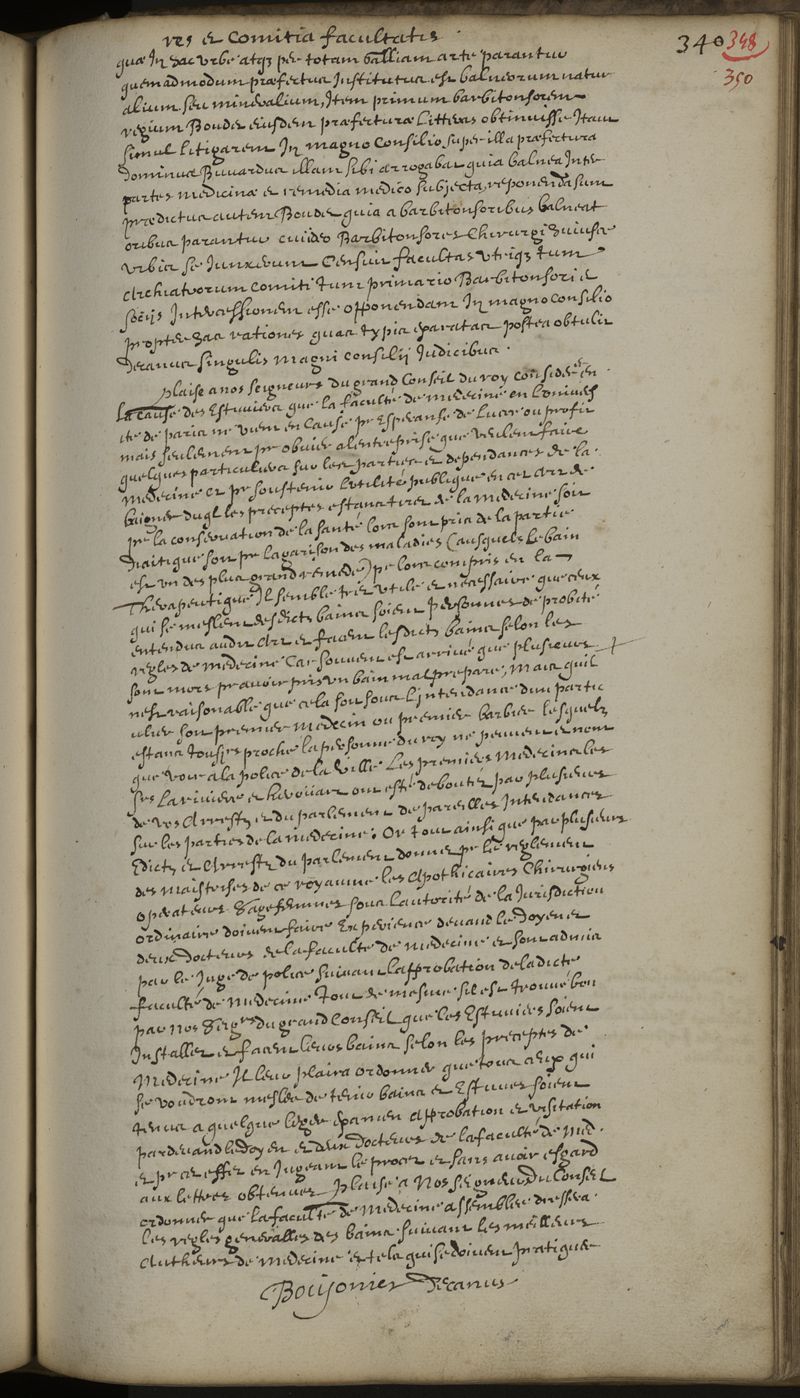 res et Comitia facultatis
340 348
350
quæ In hac urbe atq3 per totam Galliam arte parantur
quemadmodum præfectus Institutus est balneorum natur
alium seu mineralium, Item primum barbitonsorem
regium Boudet eiusdem præfecturæ litteras obtinuisse Itaut
simul litigarent In magno Consilio super illa præfectura
Dominus Buuardus illam sibi arrogabat quia balnea Inter
partes medicinæ et remedia medico subjecta reponenda sunt
prædictus autem Boudet quia a barbitonsoribus balneat
oribus parantur cui ideo Barbitonsores Chirurgi huiusce
urbis se Iunxerunt Censuit facultas utriq3 tum
Archiatrorum comiti tum primario Barbitonsori et
socijs Intercessionem esse opponendam In magno consilio
propter has rationes quas typis exaratas postea obtulit
Decanus singulis magni consilij Iudicibus.
Plaise a nos seigneurs du grand Conseil du roy considérér en
la cause des Estuvistes que la faculté de medecine en l'univers
ité de paris ne vient en Cause pr Esperanse de Lucre ou profit
mais seulement pr obuier a lentreprise que veulent faire
quelques particuliers sur les parties et dependances de la
medecine et pr soustenir l'utilité publique en cet Art de
baigner duql les preceptes estans tirez de la medecine soit
pr la conservation de la santé lors sont pris de la partie
Diaitique soit pr la garison des maladies (ausquels le bain
est un des plus grand remede) pr lors compris en la
Therapeutique Il semble tres utile et necessaire que ceux
qui se meslent desdicts bains soient personnes de probité
entendus audit Art et facent lesdicts bains selon les
regles de medecine Car souvent est arrivé que plusieurs
sont mors pr auoir pris un bain mal preparé, Mais quil
nest raisonable que cela soit sous l'intendance d'un partic
ulier soit premier medecin ou premier barbier lesquelz
estans tousjrs proche la personne du roy ne peuvent et n'ont
que voir a la police de la ville Les premiers medecins les
srs Lariviere et herouart ont esté deboutez par plusieurs
de vos Arrestz et du parlement de pareilles Intendances
sur les parties de la medecine; Or tout ainsi que par plusieurs
Edicts et Arrestz du parlement donnez pr le reglement
des maistrises de ce royaume les Apothicaires Chirurgiens
operateurs Sagefemmes sous l'autorité de la Iurisdiction
ordinaire doivent faire Experience devand le Doyen et
deux docteurs de la faculté de medecine et sont admis
par le Iuge de police suivant l'approbation de ladicte
faculté de Medecine Tout de mesme sil est trouvé bon
par nos Seigrs du grand Conseil que les Estuvistes soient
Installez et facent leurs bains selon les preceptes de
Medecine Il leur plaira ordonner que tous ceux qui
se voudront mesler de tenir bains et Estuves soient
tenus a quelque leger examen Approbation et visitation
pardevand le doyen et deux Docteurs de la faculté de Med.
et pr ce effet en Iugeant le procez et sans avoir esgard
aux lettres obtenues Plaise a Nos Seigneurs du Conseil
ordonner que la faculté de Medecine assemblée dressera
les regles generalles des bains suivant les meilleurs
Autheurs de medecine et tela qui se doivent pratiquer
Boujonier Decanus